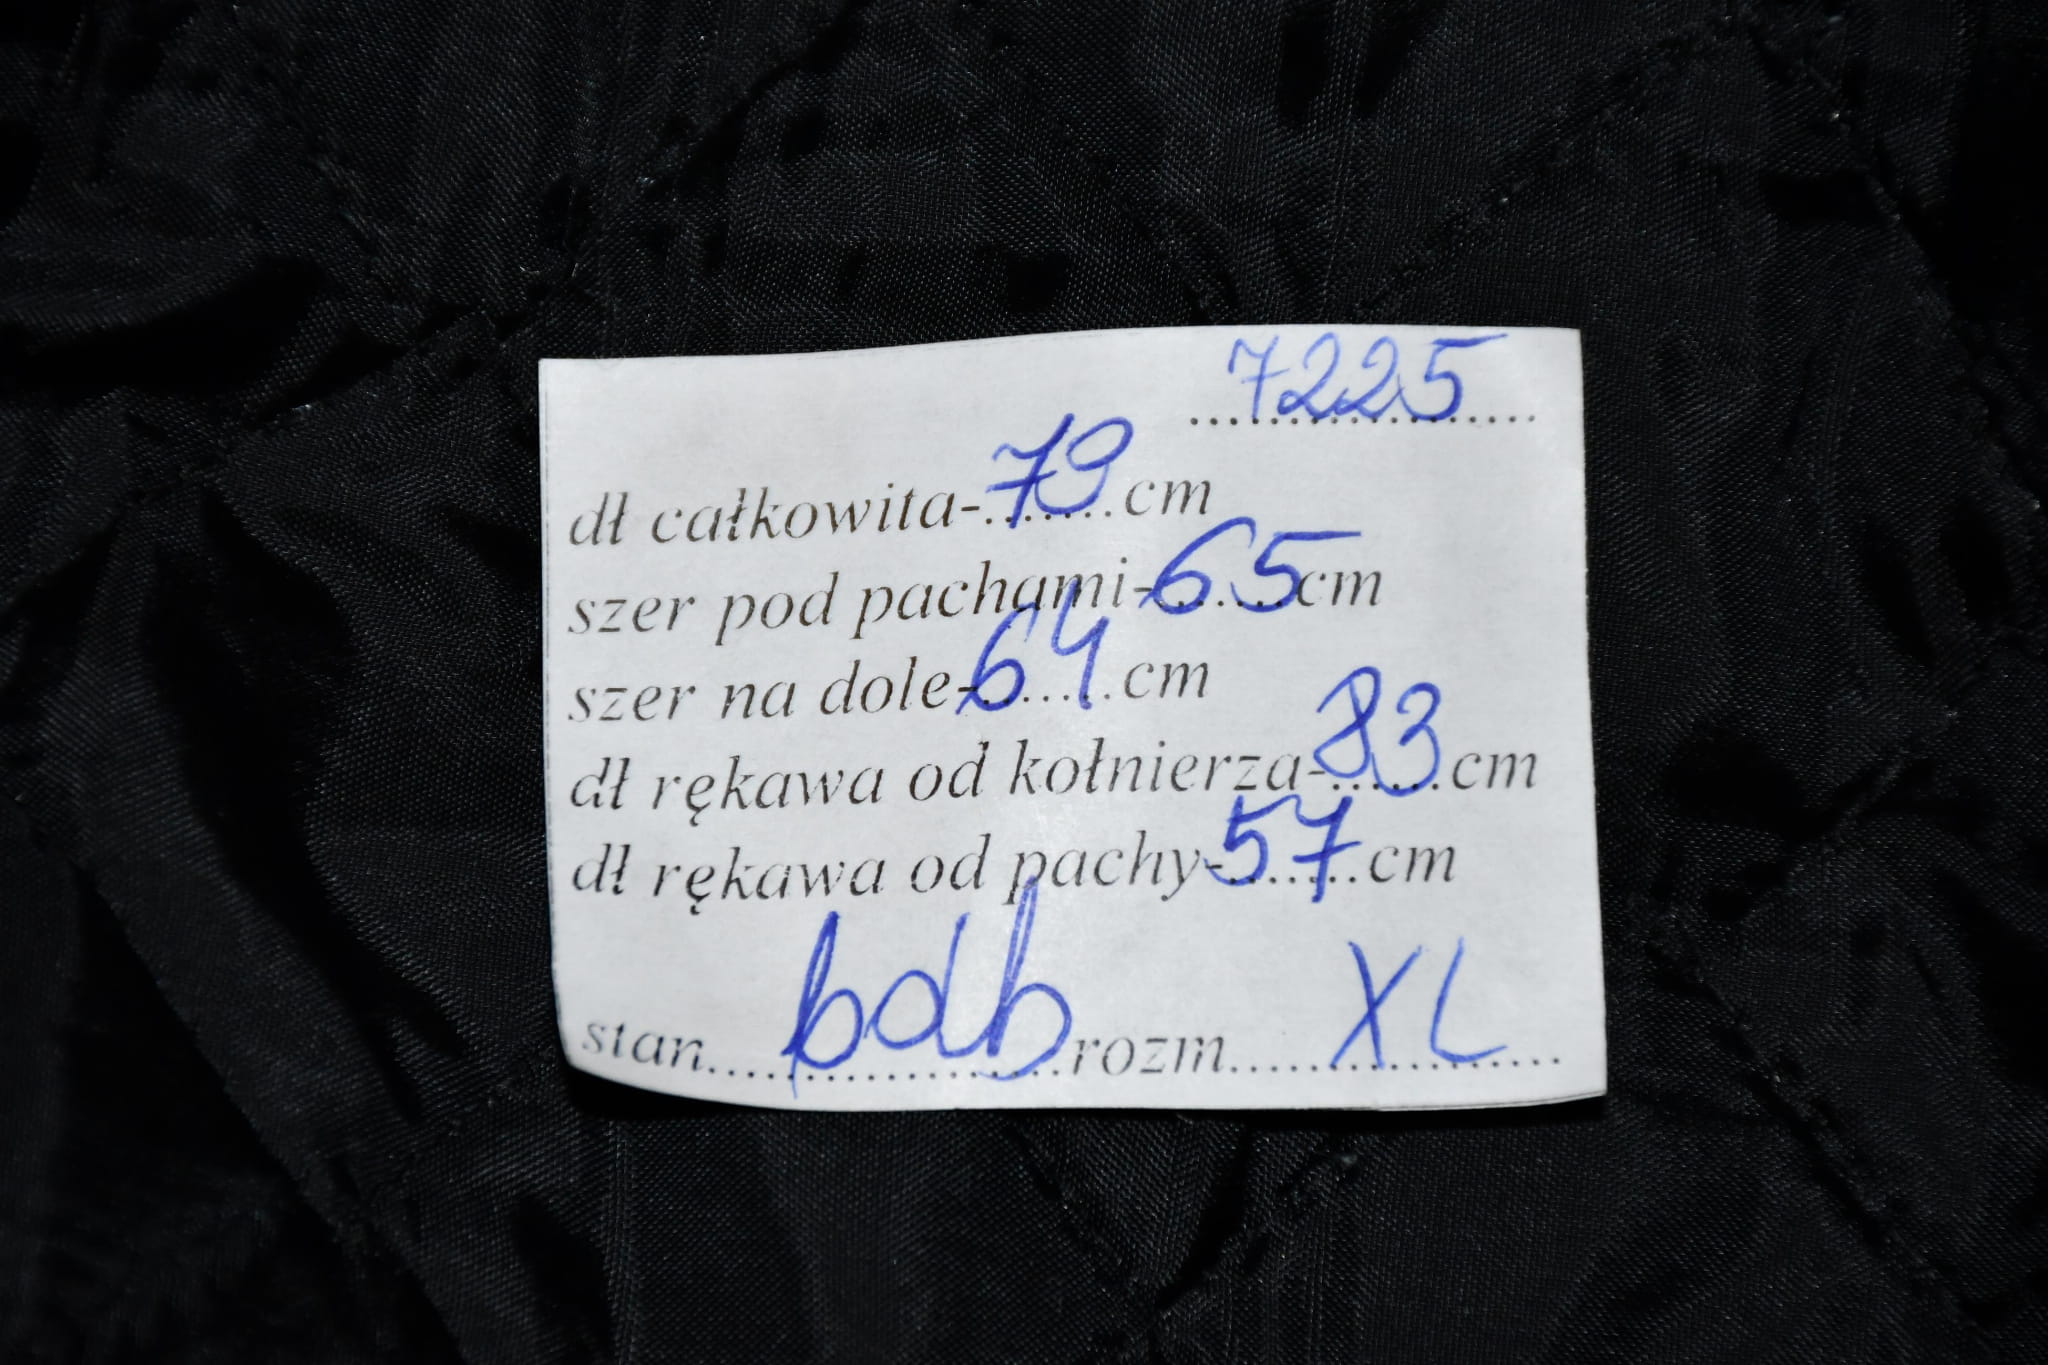 .......7225.......
dł całkowita-.79.cm
szer pod pachami-65cm
szer na dole-64.cm
dł rękawa od kołnierza-83.cm
dł rękawa od pachy-57.cm
stan....bdb....rozm....XL....